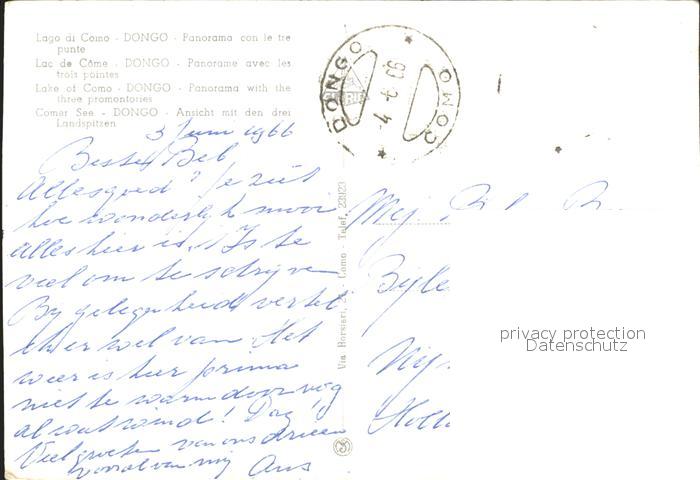 Lago di Como - DONGO - Panorama con le tre
punte
Lac de Côme - DONGO - Panorame avec les
trois pointes
Lake of Como - DONGO - Panorama with the
three promontories
Comer See - DONGO - Ansicht mit den drei
Landspitzen
DONGO
COMO
4-6-66
3 Juni 1966
Beste Bel
Allesgoed? Je ziet
hoe wonderlijk mooi
alles hier is. 't Is te
veel om te schrijven
By gelegenheid vertel
ik er wel van Het
weer is hier prima
niet te warm door
al wat wind! Dag!
Veel groeten van ons drieën
vooral van mij Ans
Mej.
Via Horstari, Como Telef.
privacy protection
Datenschutz